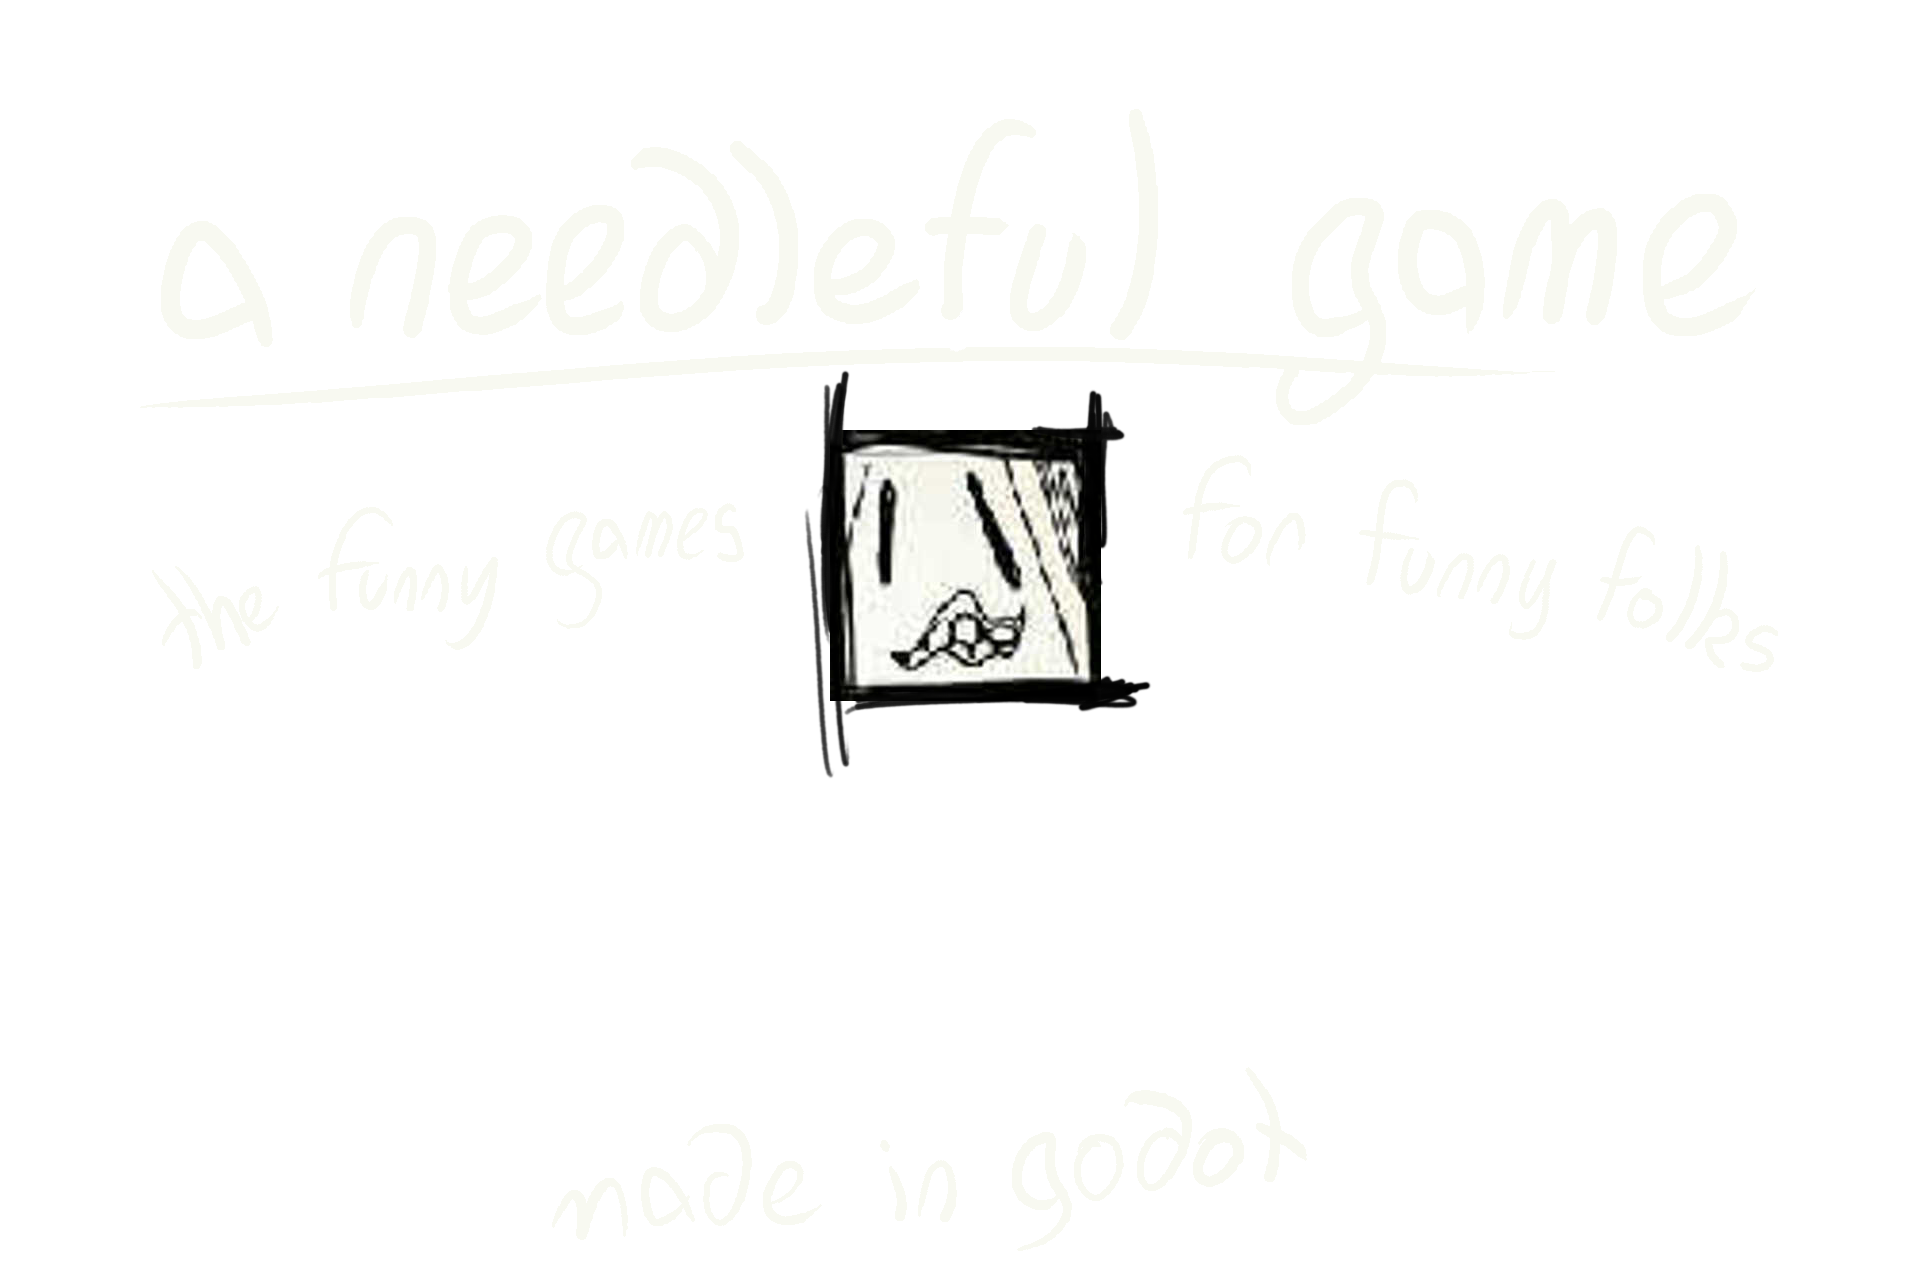 a needleful game
the funny games for funny folks
made in godot